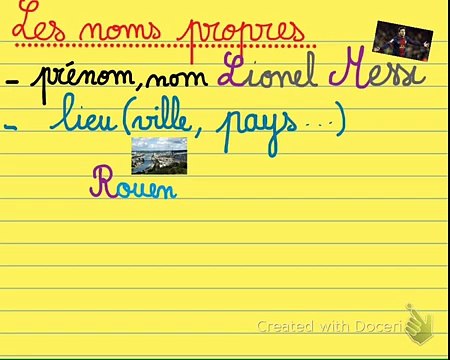 Les noms propres
- prénom, nom Lionel Messi
- lieu (ville, pays ...)
Rouen
Created with Doceri